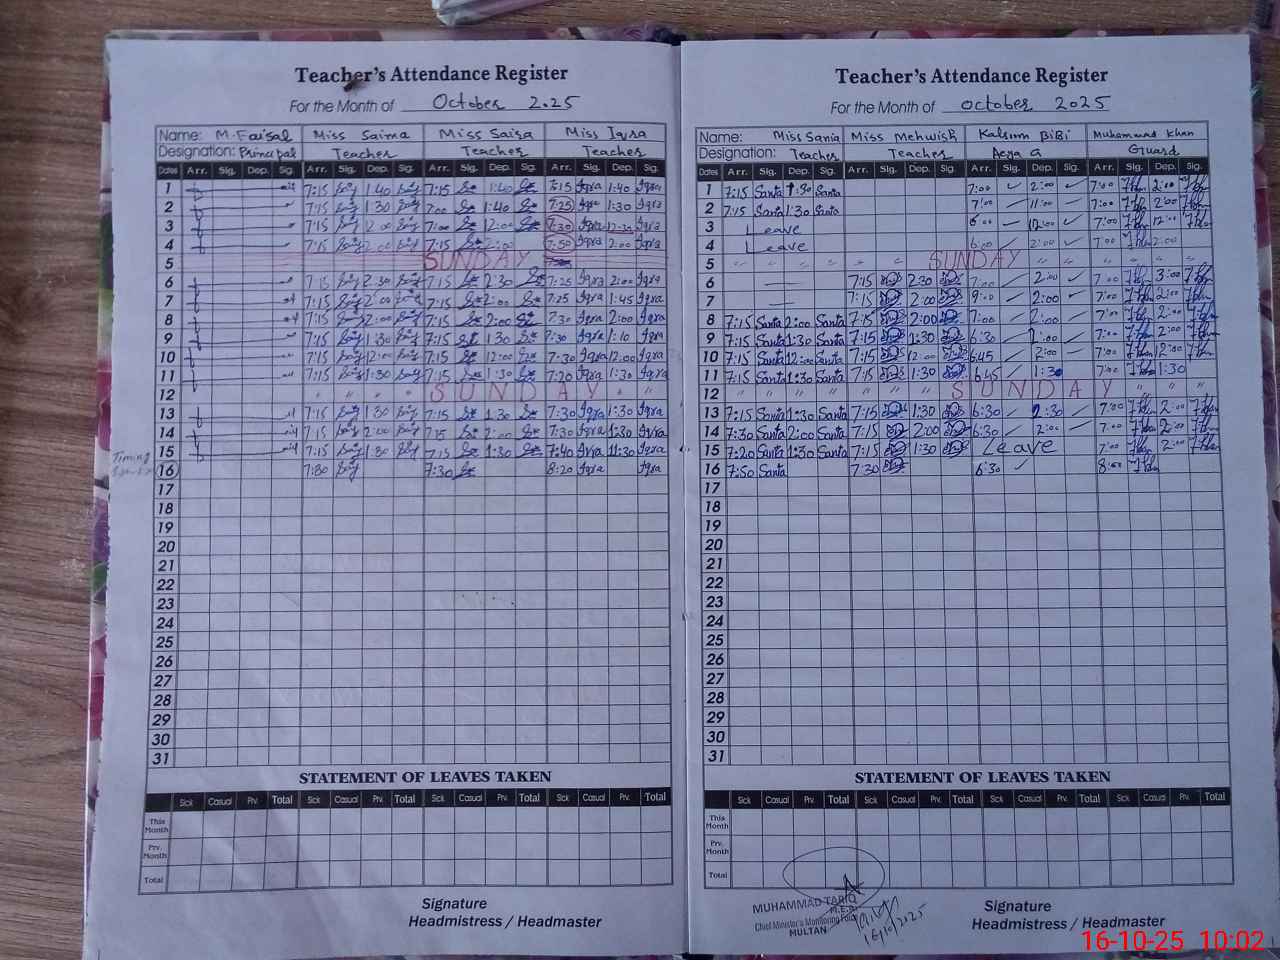 Teacher's Attendance Register
For the Month of October 2025
Name: M.Faisal Miss Saima Miss Saira Miss Iqra
Designation: Principal Teacher Teacher Teacher
Dates Arr. Sig. Dep. Sig. Arr. Sig. Dep. Sig. Arr. Sig. Dep. Sig. Arr. Sig. Dep. Sig.
1 7:15 1:40 7:15 1:40 7:15 Iqra 1:40 Iqra
2 7:15 1:30 7:00 1:40 7:25 Iqra 1:30 Iqra
3 7:15 2:00 7:00 12:00 7:30 Iqra 12:30 Iqra
4 7:15 2:00 7:15 2:00 7:50 Iqra 2:00 Iqra
5 SUNDAY
6 7:15 2:30 7:15 2:30 7:25 Iqra 2:00 Iqra
7 7:15 2:00 7:15 2:00 7:25 Iqra 1:45 Iqra
8 7:15 2:00 7:15 2:00 7:30 Iqra 2:00 Iqra
9 7:15 1:30 7:15 1:30 7:30 Iqra 1:10 Iqra
10 7:15 12:00 7:15 12:00 7:30 Iqra 12:00 Iqra
11 7:15 1:30 7:15 1:30 7:20 Iqra 1:30 Iqra
12 SUNDAY
13 7:15 1:30 7:15 1:30 7:30 Iqra 1:30 Iqra
14 7:15 2:00 7:15 2:00 7:30 Iqra 1:30 Iqra
15 7:15 1:30 7:15 1:30 7:40 Iqra 11:30 Iqra
Timing
16 7:30 7:30 8:20 Iqra Iqra
17
18
19
20
21
22
23
24
25
26
27
28
29
30
31
STATEMENT OF LEAVES TAKEN
Sick Casual Prv. Total Sick Casual Prv. Total Sick Casual Prv. Total Sick Casual Prv. Total
This Month
Prv. Month
Total
Signature
Headmistress / Headmaster
Teacher's Attendance Register
For the Month of October 2025
Name: Miss Sania Miss Mehwish Kalsum BiBi Muhammad Khan
Designation: Teacher Teacher Aaya G Guard
Dates Arr. Sig. Dep. Sig. Arr. Sig. Dep. Sig. Arr. Sig. Dep. Sig. Arr. Sig. Dep. Sig.
1 7:15 Sania 1:30 Sania 7:00 ✓ 2:00 ✓ 7:00 2:00
2 7:15 Sania 1:30 Sania 7:00 ✓ 11:00 ✓ 7:00 2:00
3 Leave 6:00 12:00 ✓ 7:00 12:00
4 Leave 6:00 2:00 ✓ 7:00 2:00
5 SUNDAY
6 7:15 2:30 7:00 2:00 ✓ 7:00 3:00
7 7:15 2:00 9:00 2:00 ✓ 7:00 2:00
8 7:15 Sania 2:00 Sania 7:15 2:00 7:00 2:00 7:00 2:00
9 7:15 Sania 1:30 Sania 7:15 1:30 6:30 7:00 2:00
10 7:15 Sania 12:00 Sania 7:15 12:00 6:45 2:00 7:00 12:30
11 7:15 Sania 1:30 Sania 7:15 1:30 6:45 1:30 7:00 1:30
12 SUNDAY
13 7:15 Sania 1:30 Sania 7:15 1:30 6:30 2:30 7:00 2:00
14 7:30 Sania 2:00 Sania 7:15 2:00 6:30 2:00 7:00 2:00
15 7:20 Sania 1:30 Sania 7:15 1:30 Leave 7:00 2:00
16 7:50 Sania 7:30 6:30 ✓ 8:00
17
18
19
20
21
22
23
24
25
26
27
28
29
30
31
STATEMENT OF LEAVES TAKEN
Sick Casual Prv. Total Sick Casual Prv. Total Sick Casual Prv. Total Sick Casual Prv. Total
This Month
Prv. Month
Total
MUHAMMAD TARIQ
M.E.A
Chief Minister's Monitoring Force
MULTAN
16/10/2025
Signature
Headmistress / Headmaster
16-10-25 10:02